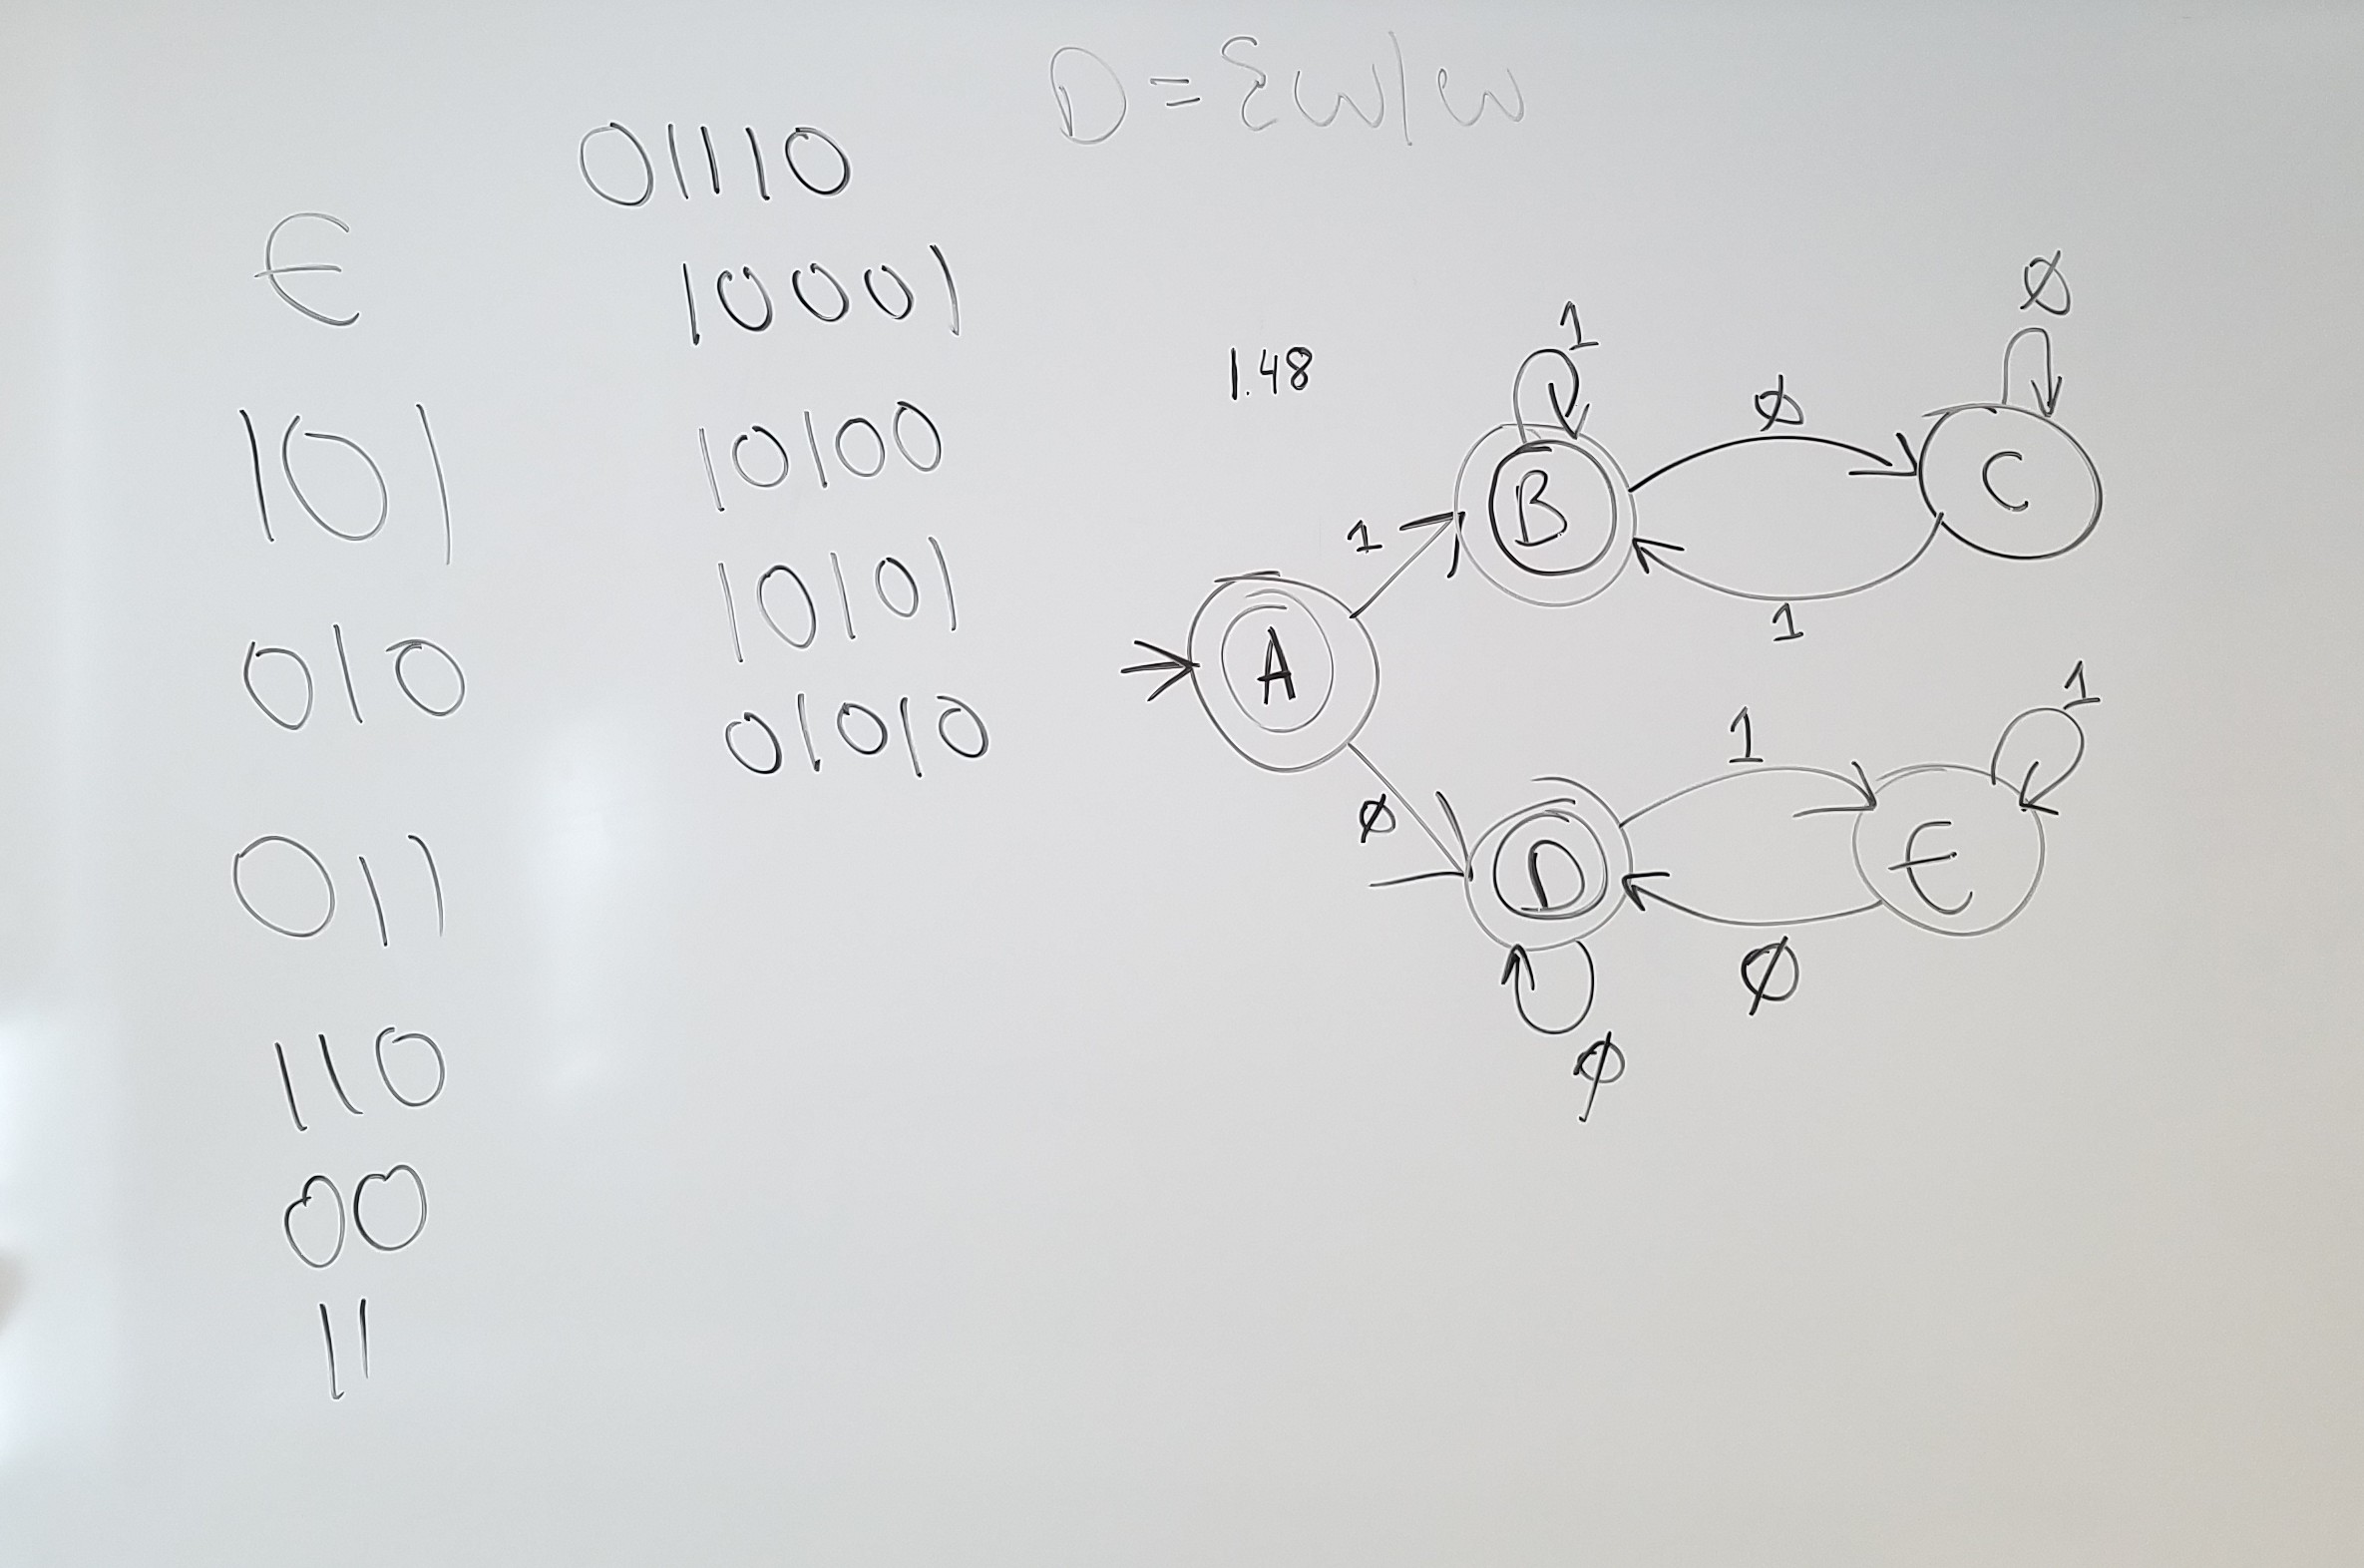 D = {w|w
01110
10001
10100
10101
01010
ε
101
010
011
110
00
11
1.48
1
0
0
B
C
1
1
A
0
1
1
D
E
0
0